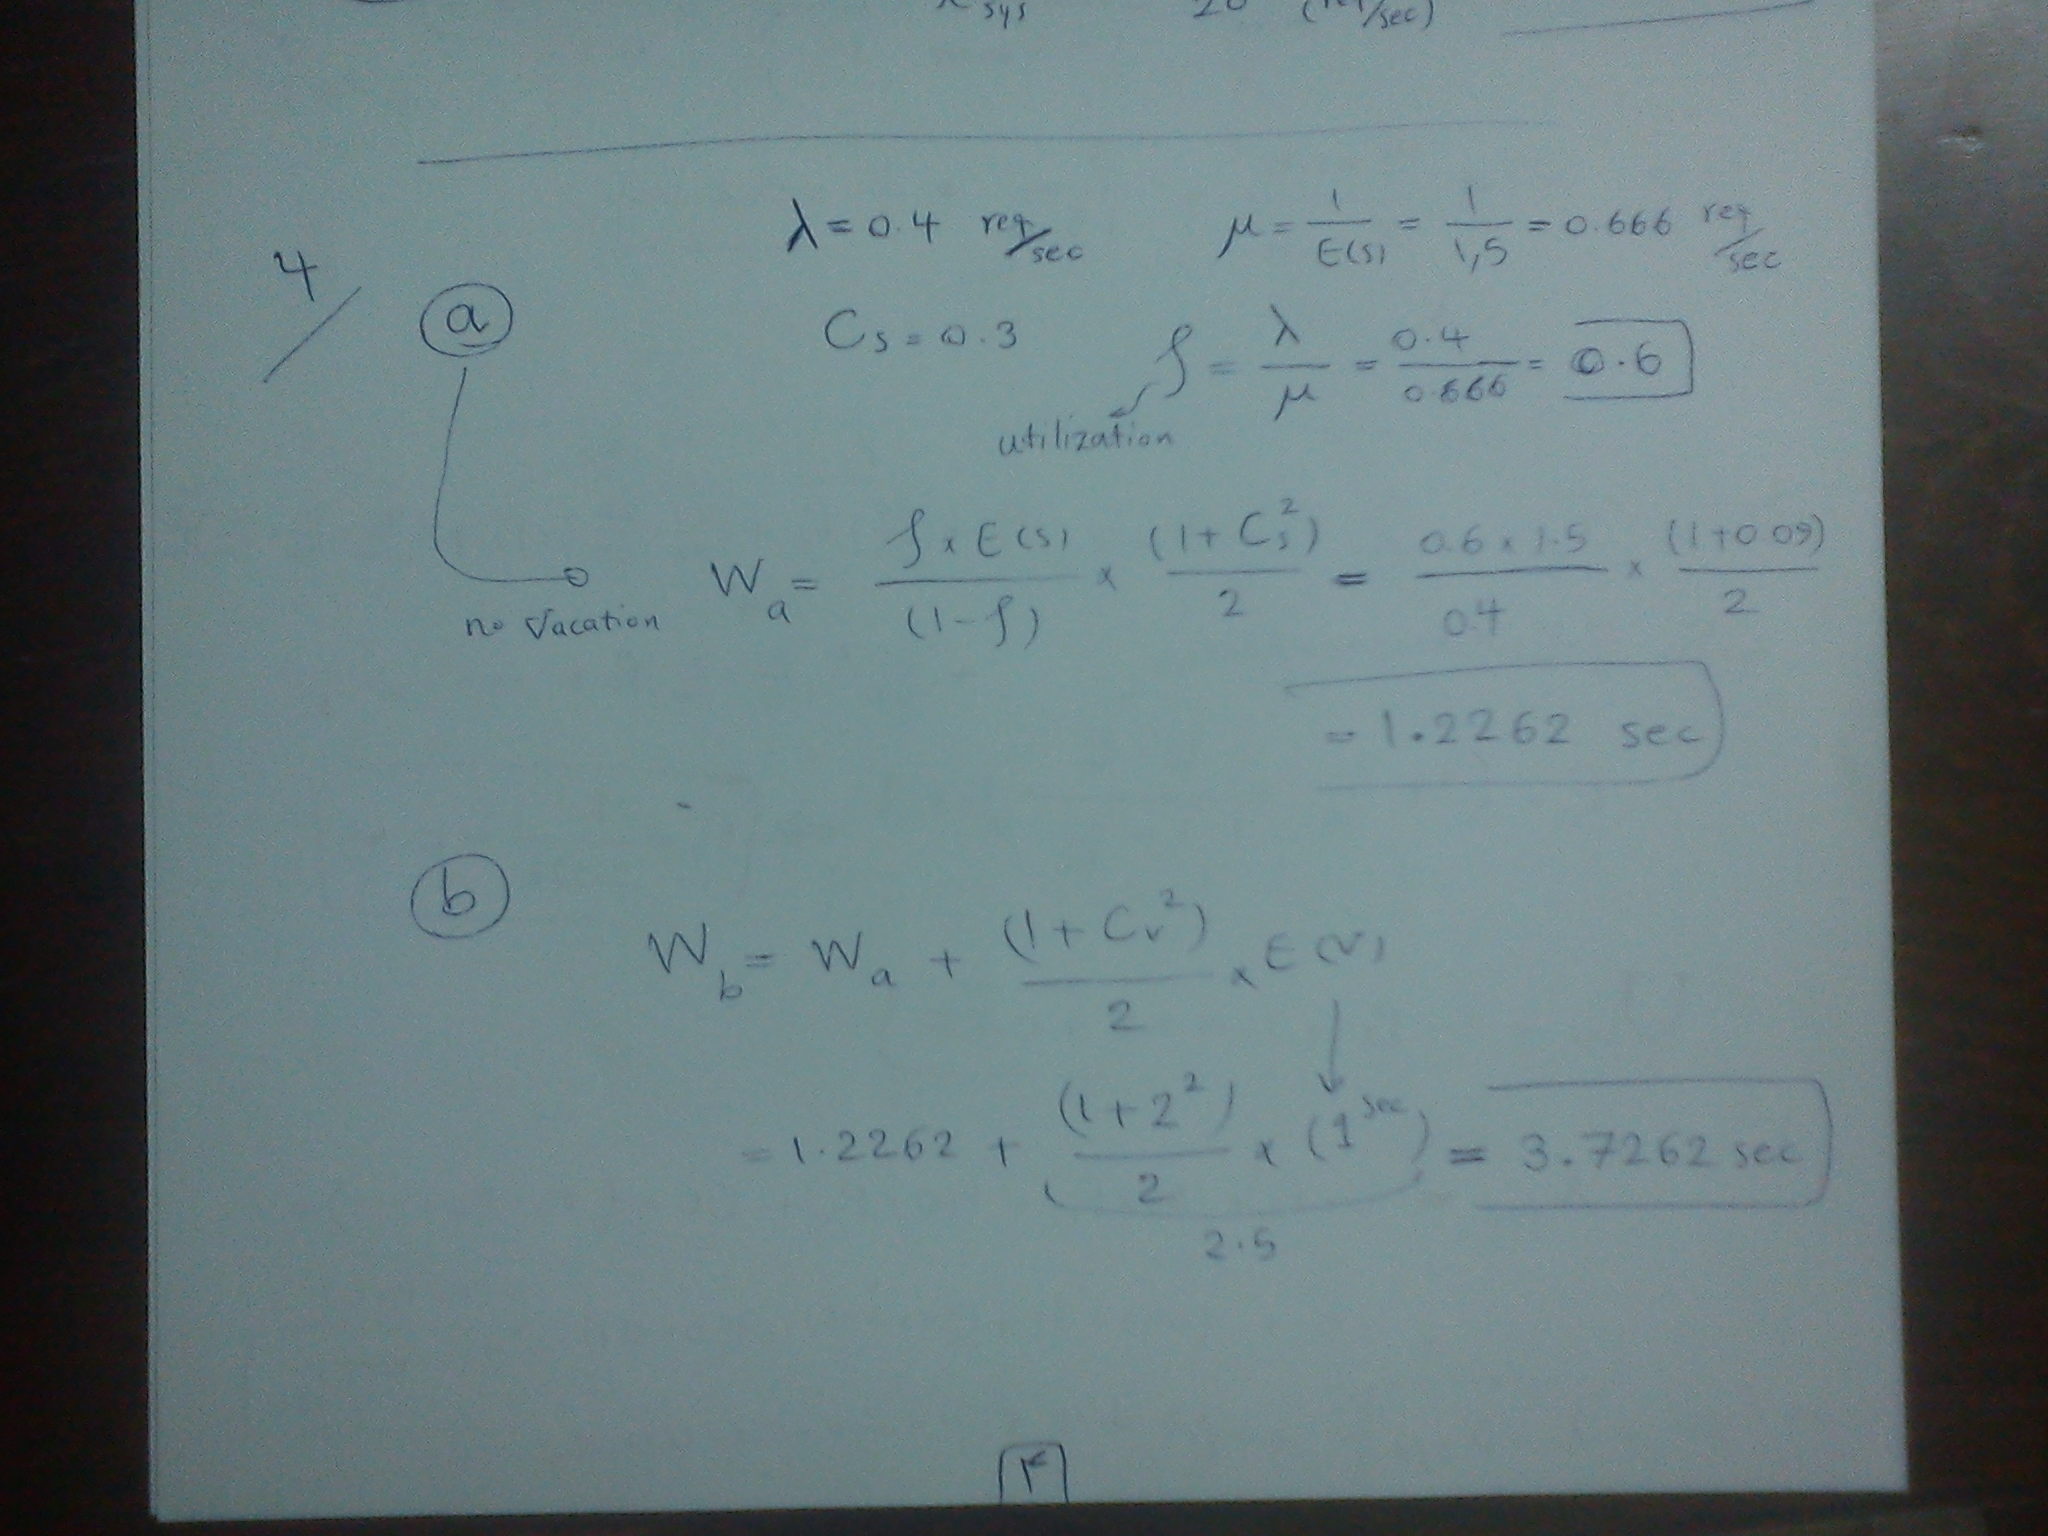 sys 20 (req/sec)
λ = 0.4 req/sec μ = 1/E(s) = 1/1,5 = 0.666 req/sec
4/ a Cs = 0.3 ρ = λ/μ = 0.4/0.666 = 0.6
utilization
no vacation Wa = ρ × E(s)/(1-ρ) × (1+Cs²)/2 = 0.6 × 1.5/0.4 × (1+0.09)/2
= 1.2262 sec
b
Wb = Wa + (1+Cv²)/2 × E(V)
= 1.2262 + (1+2²)/2 × (1 sec) = 3.7262 sec
2.5
۴